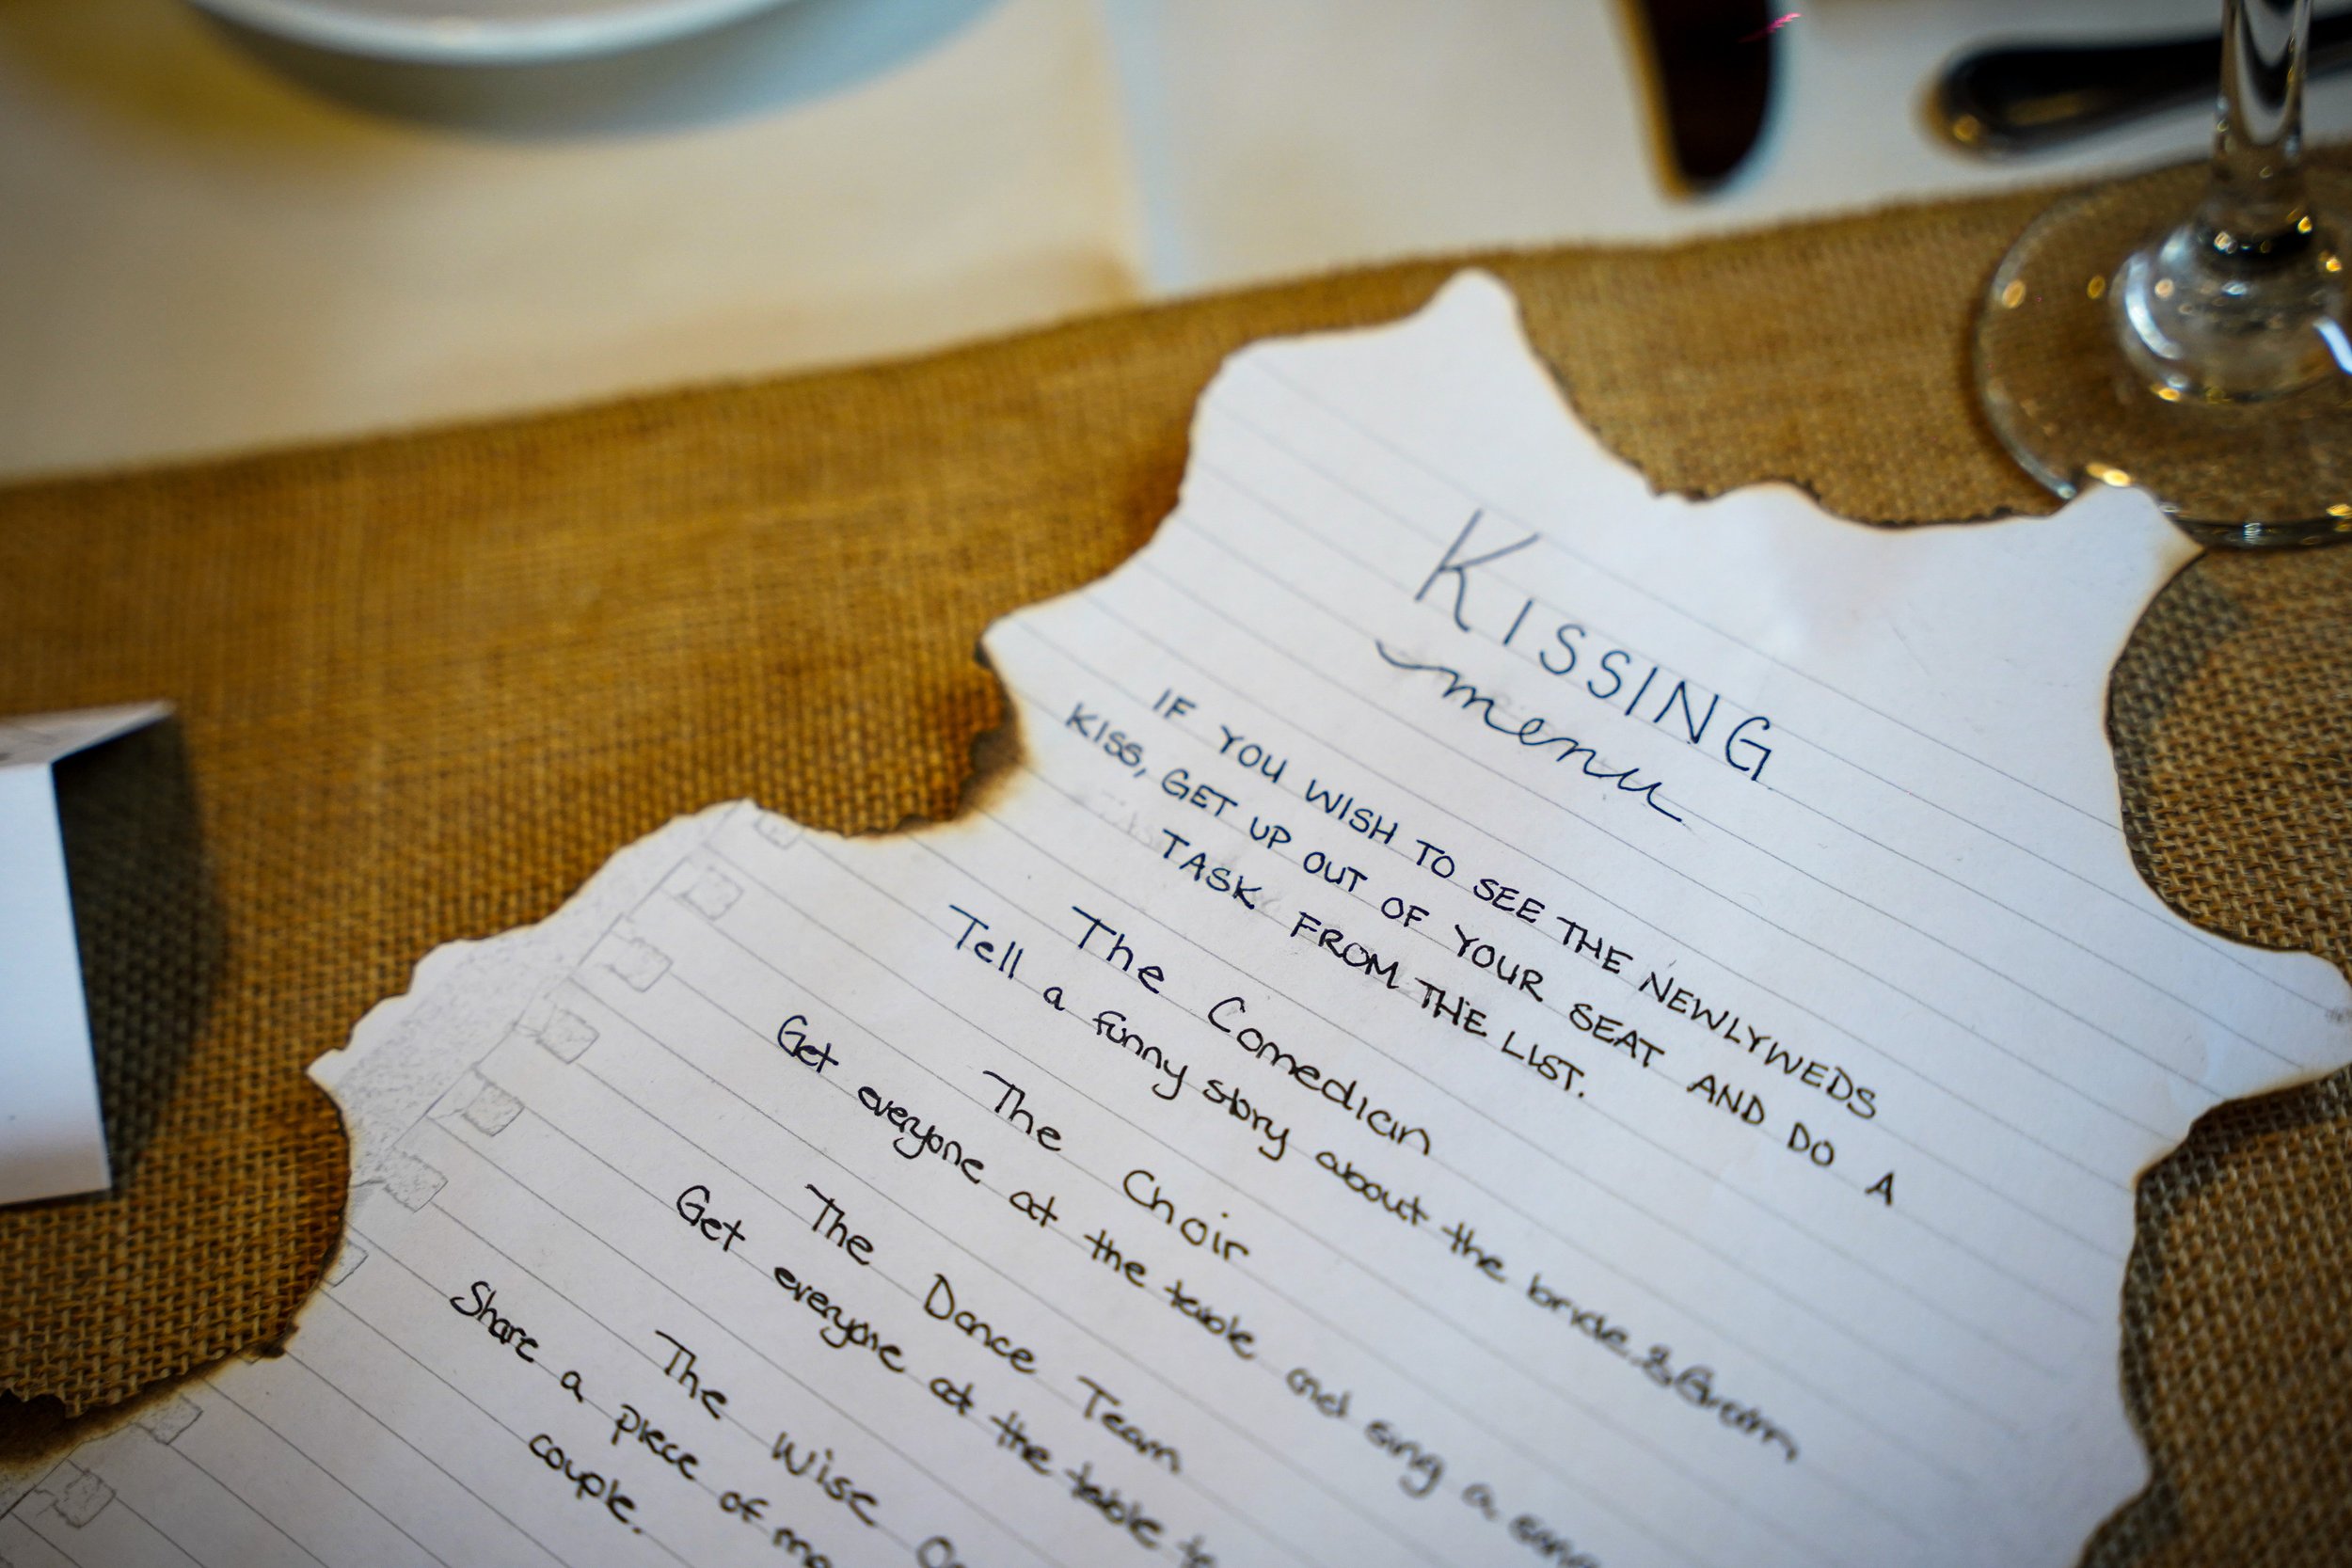 KISSING
menu
IF YOU WISH TO SEE THE NEWLYWEDS
KISS, GET UP OUT OF YOUR SEAT AND DO A
TASK FROM THE LIST.
The Comedian
Tell a funny story about the bride & Groom
The Choir
Get everyone at the table and sing a song
The Dance Team
Get everyone at the table to
The Wise
Share a piece of
couple.